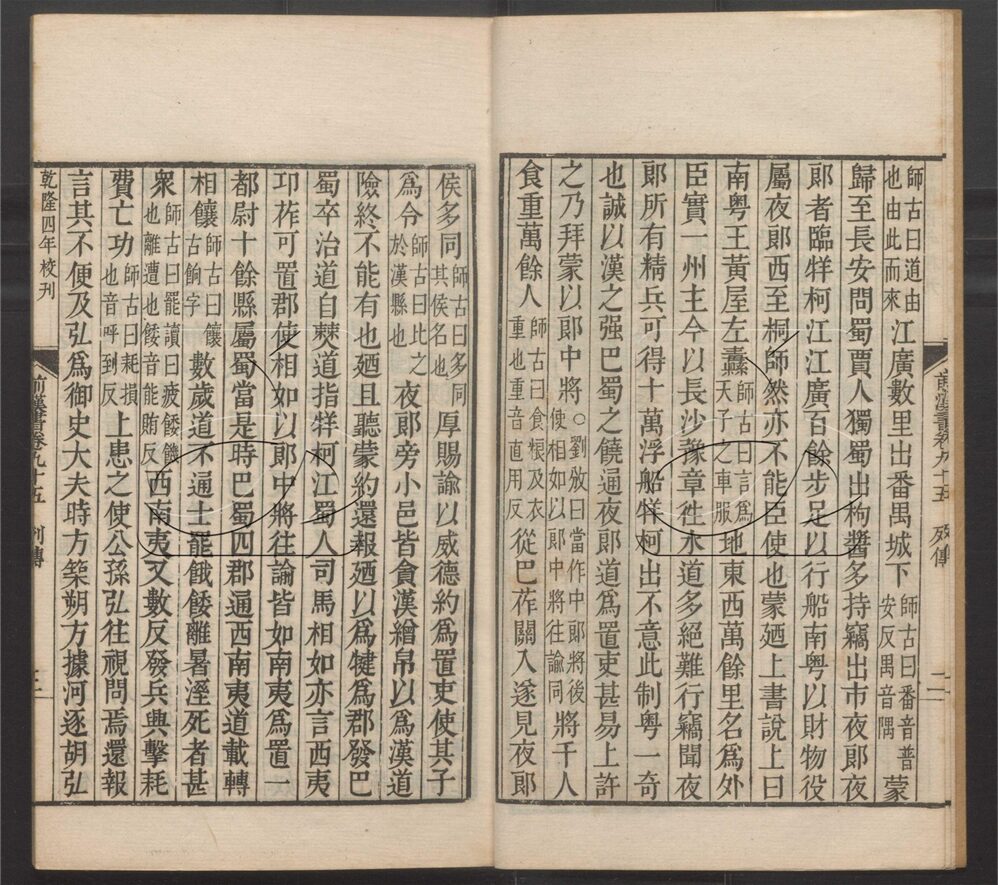 師古曰道由也由此而來江廣數里出番禺城下師古曰番音普安反禺音隅蒙
歸至長安問蜀賈人獨蜀出枸醬多持竊出市夜郎夜
郎者臨牂柯江江廣百餘步足以行船南粤以財物役
屬夜郎西至桐師然亦不能臣使也蒙廼上書說上曰
南粤王黃屋左纛師古曰言爲天子之車服地東西萬餘里名爲外
臣實一州主今以長沙豫章往水道多絕難行竊聞夜
郎所有精兵可得十萬浮船牂柯出不意此制粤一奇
也誠以漢之强巴蜀之饒通夜郎道爲置吏甚易上許
之乃拜蒙以郎中將○劉攽曰當作中郎將後使相如以郎中將往諭同將千人
食重萬餘人師古曰食粻及衣重也重音直用反從巴莋關入遂見夜郎
前漢書卷九十五 列傳 二
侯多同師古曰多同其侯名也厚賜諭以威德約爲置吏使其子
爲令師古曰比之於漢縣也夜郎旁小邑皆貪漢繒帛以爲漢道
險終不能有也廼且聽蒙約還報廼以爲犍爲郡發巴
蜀卒治道自僰道指牂柯江蜀人司馬相如亦言西夷
卭莋可置郡使相如以郎中將往諭皆如南夷爲置一
都尉十餘縣屬蜀當是時巴蜀四郡通西南夷道載轉
相饟師古曰饟古餉字數歲道不通士罷餓餧離暑溼死者甚
衆師古曰罷讀曰疲餧饑也離遭也餧音能賄反西南夷又數反發兵興擊耗
費亡功師古曰耗損也音呼到反上患之使公孫弘往視問焉還報
言其不便及弘爲御史大夫時方築朔方據河逐胡弘
乾隆四年校刊
前漢書卷九十五 列傳